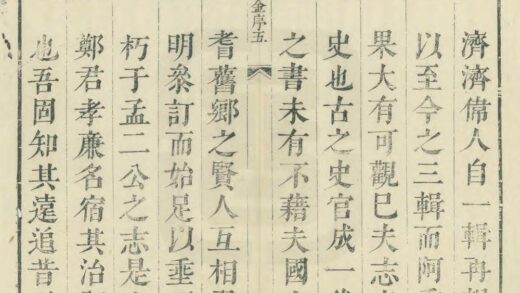 濟濟偉人自一輯再
以至今之三輯而阿
果大有可觀巳夫志
史也古之史官成一
之書未有不藉夫國
金序五
耆舊鄉之賢人互相
明叅訂而始足以垂
朽于孟二公之志是
鄭君孝廉名宿其治
也吾固知其遠追昔